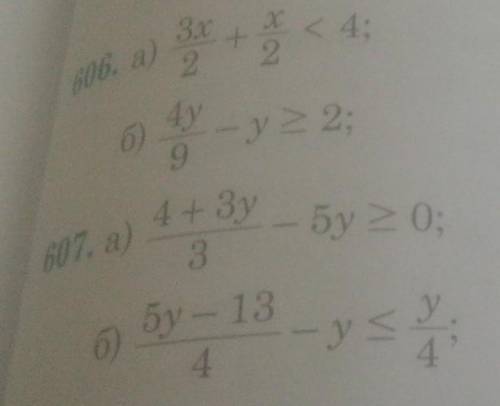 606. а) 3x/2 + x/2 < 4;
б) 4y/9 − y ≥ 2;
607. а) (4 + 3y)/3 − 5y ≥ 0;
б) (5y − 13)/4 − y ≤ y/4;